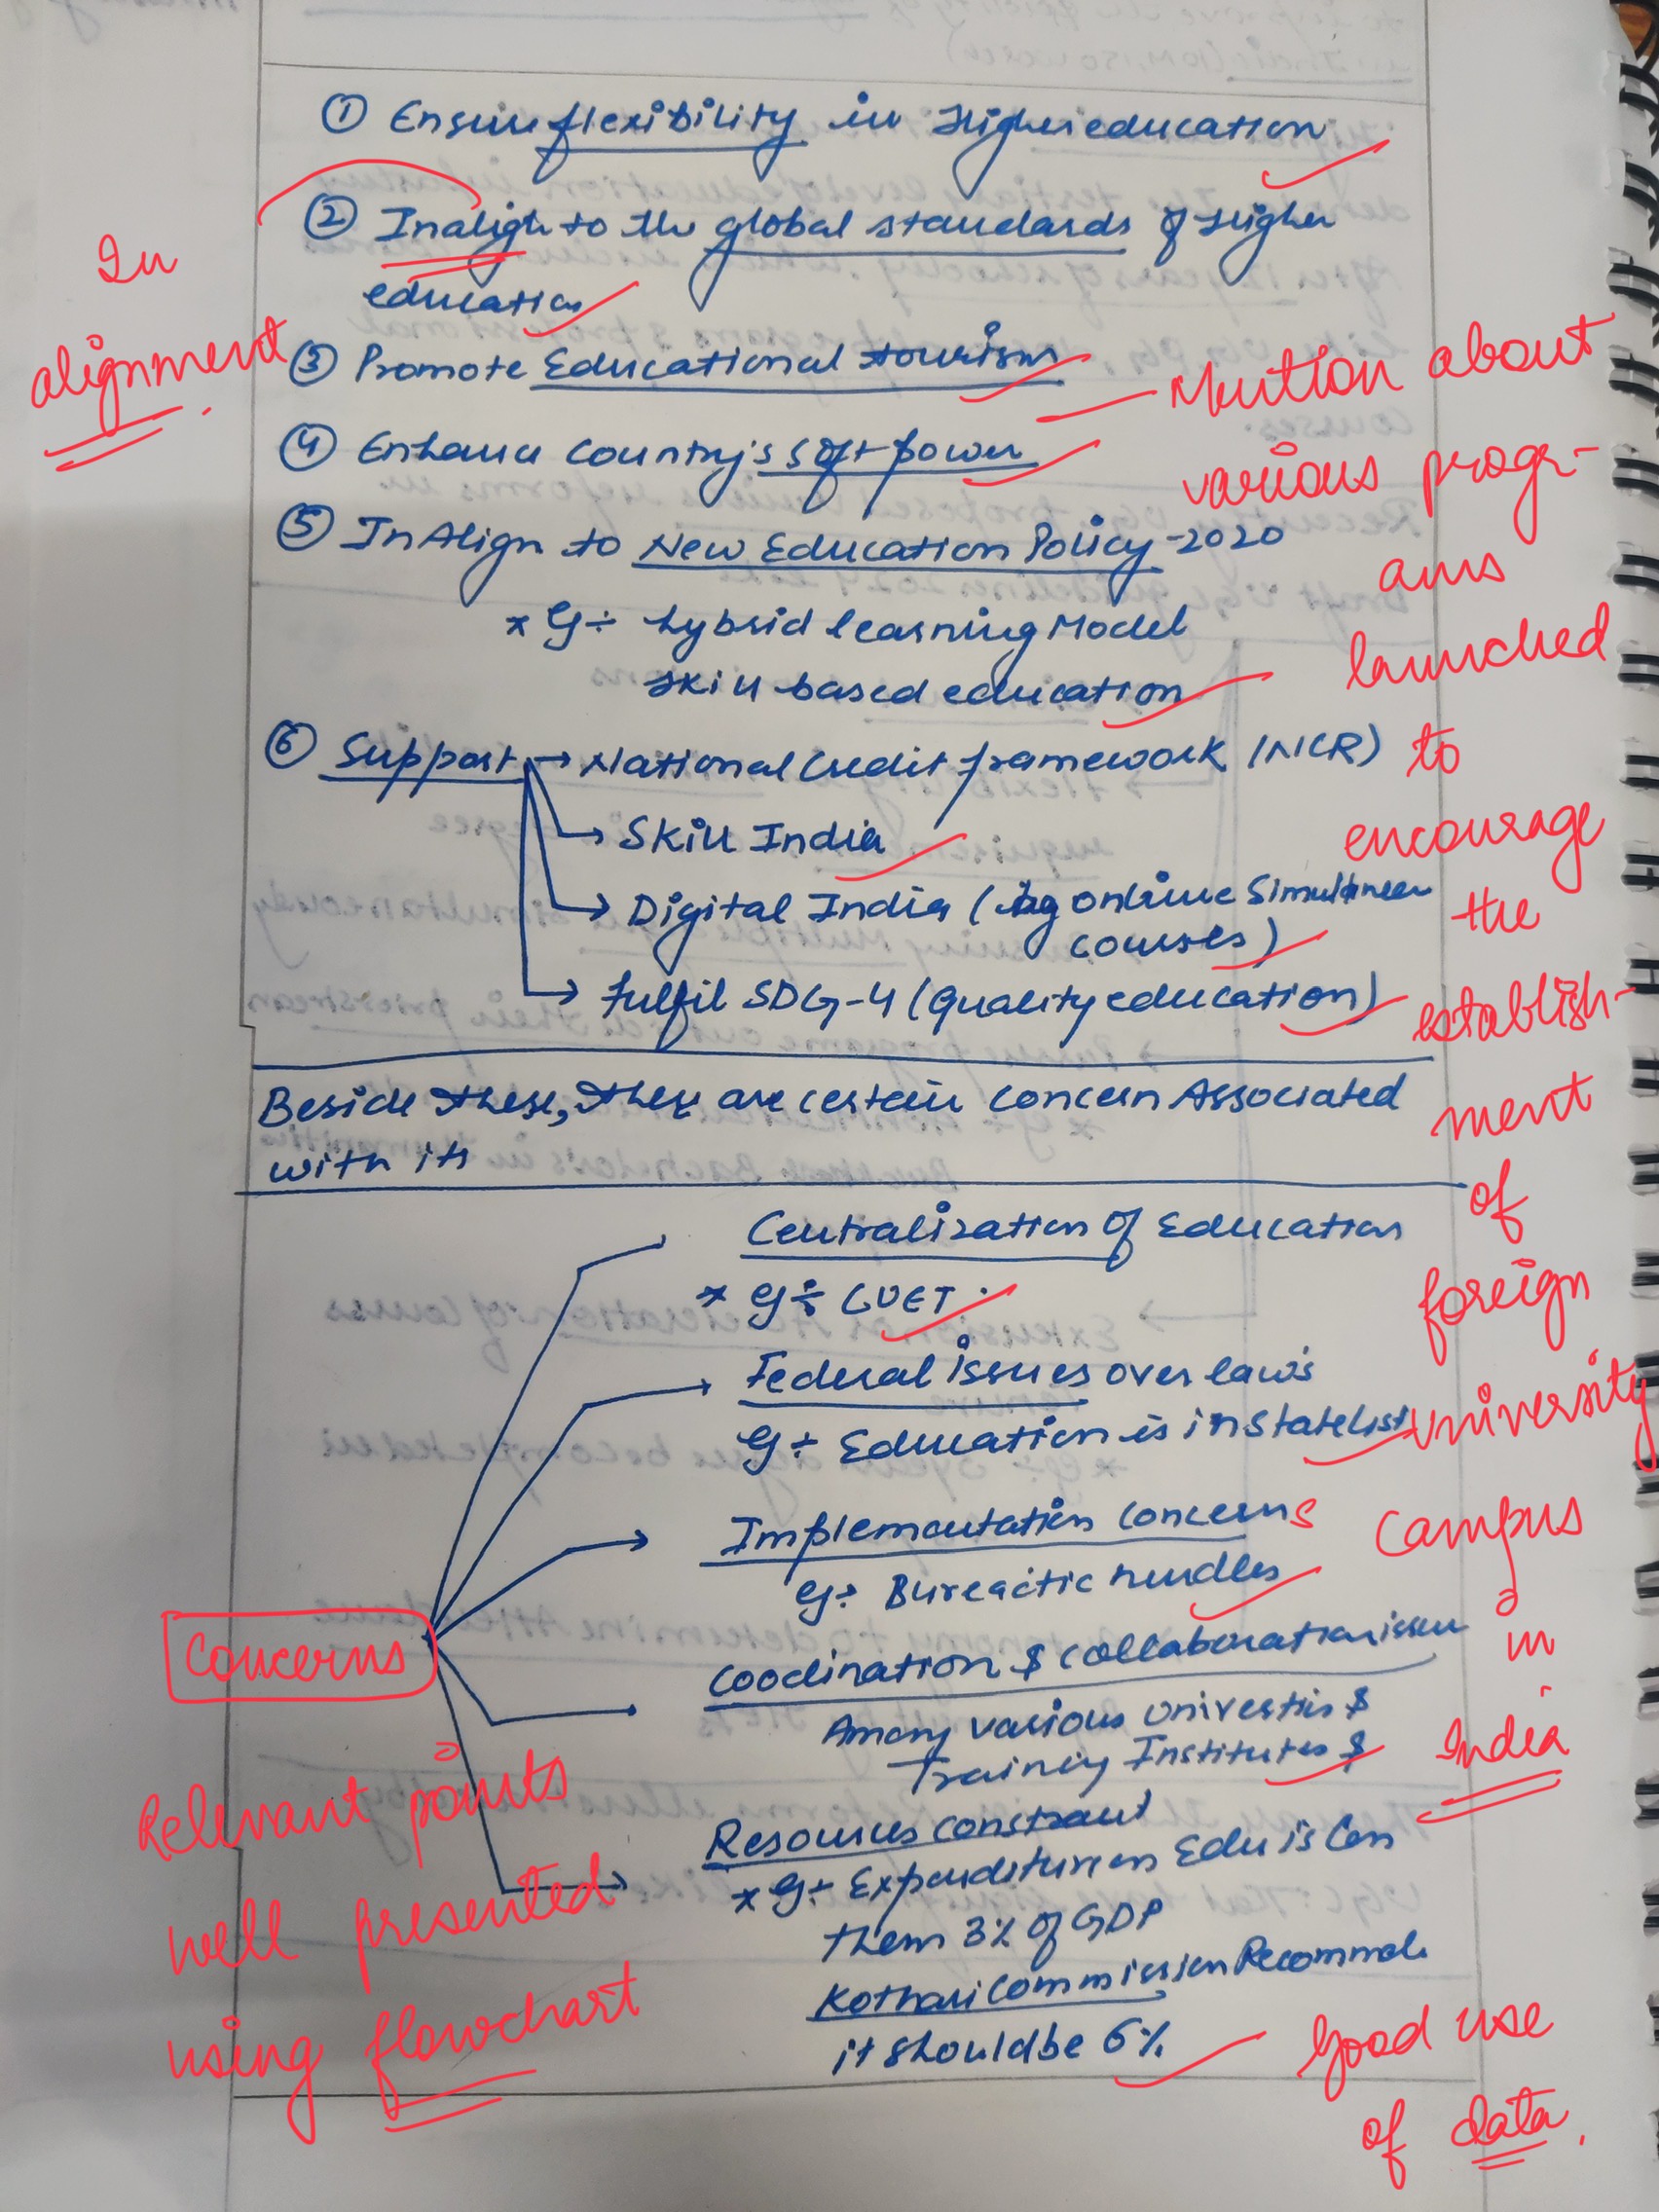 ① Ensure flexibility in Higher education
② Inalign to the global standards of Higher
education
In
alignment
③ Promote Educational tourism
④ Enhance Country's soft power
Mention about
various progr-
ams
launched
to
encourage
the
establish-
ment
of
foreign
university
campus
in
India
⑤ In Align to New Education Policy-2020
* Eg÷ hybrid learning Model
Skill based education
⑥ Support → National Credit framework (NCR)
→ Skill India
→ Digital India ( online Simultaneou
courses)
→ fulfil SDG-4 (Quality education)
Beside these, they are certain concern Associated
with its
Concerns
Centralization of Education
* eg÷ CUET
Federal issues over laws
Eg÷ Education is in State list
Implementation Concerns
eg÷ Bureactic hurdles
Coodination & collaboration issues
Among various Universtis &
Training Institutes &
Resources constraint
* Eg÷ Expenditure on Edu is less
them 3% of GDP
Kothari Commission Recommends
it should be 6%
Relevant points
well presented
using flowchart
Good use
of data.